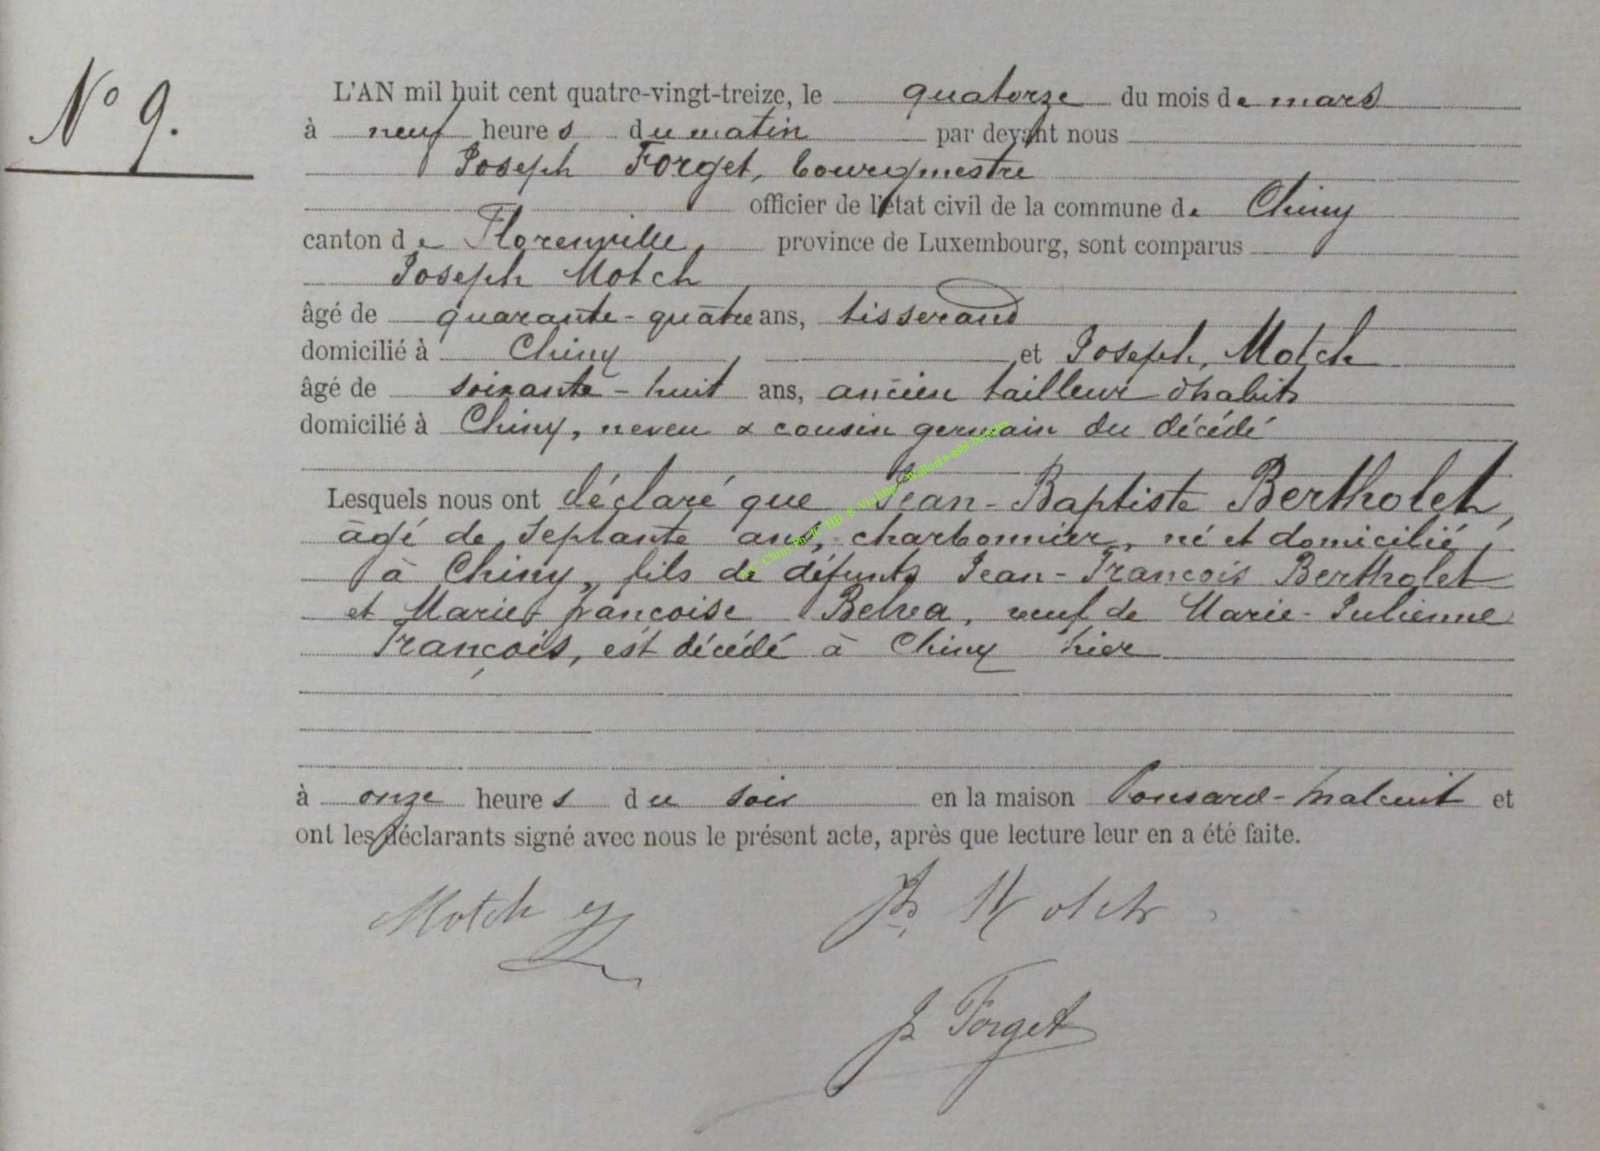 N° 9.
L'AN mil huit cent quatre-vingt-treize, le quatorze du mois de mars
à neuf heures du matin par devant nous
Joseph Forget, bourgmestre
officier de l'état civil de la commune de Chiny
canton de Florenville, province de Luxembourg, sont comparus
Joseph Motch
âgé de quarante-quatre ans, tisserand
domicilié à Chiny, et Joseph Motch
âgé de soixante-huit ans, ancien tailleur d'habits
domicilié à Chiny, neveu & cousin germain du décédé
Lesquels nous ont déclaré que Jean-Baptiste Bertholet,
âgé de septante ans, charbonnier, né et domicilié
à Chiny, fils de défunts Jean-François Bertholet
et Marie françoise, veuf de Marie-Julienne
François, est décédé à Chiny hier
à onze heures du soir en la maison Ponsard-Maleuit et
ont les déclarants signé avec nous le présent acte, après que lecture leur en a été faite.
Motch Jh Motch
J Forget